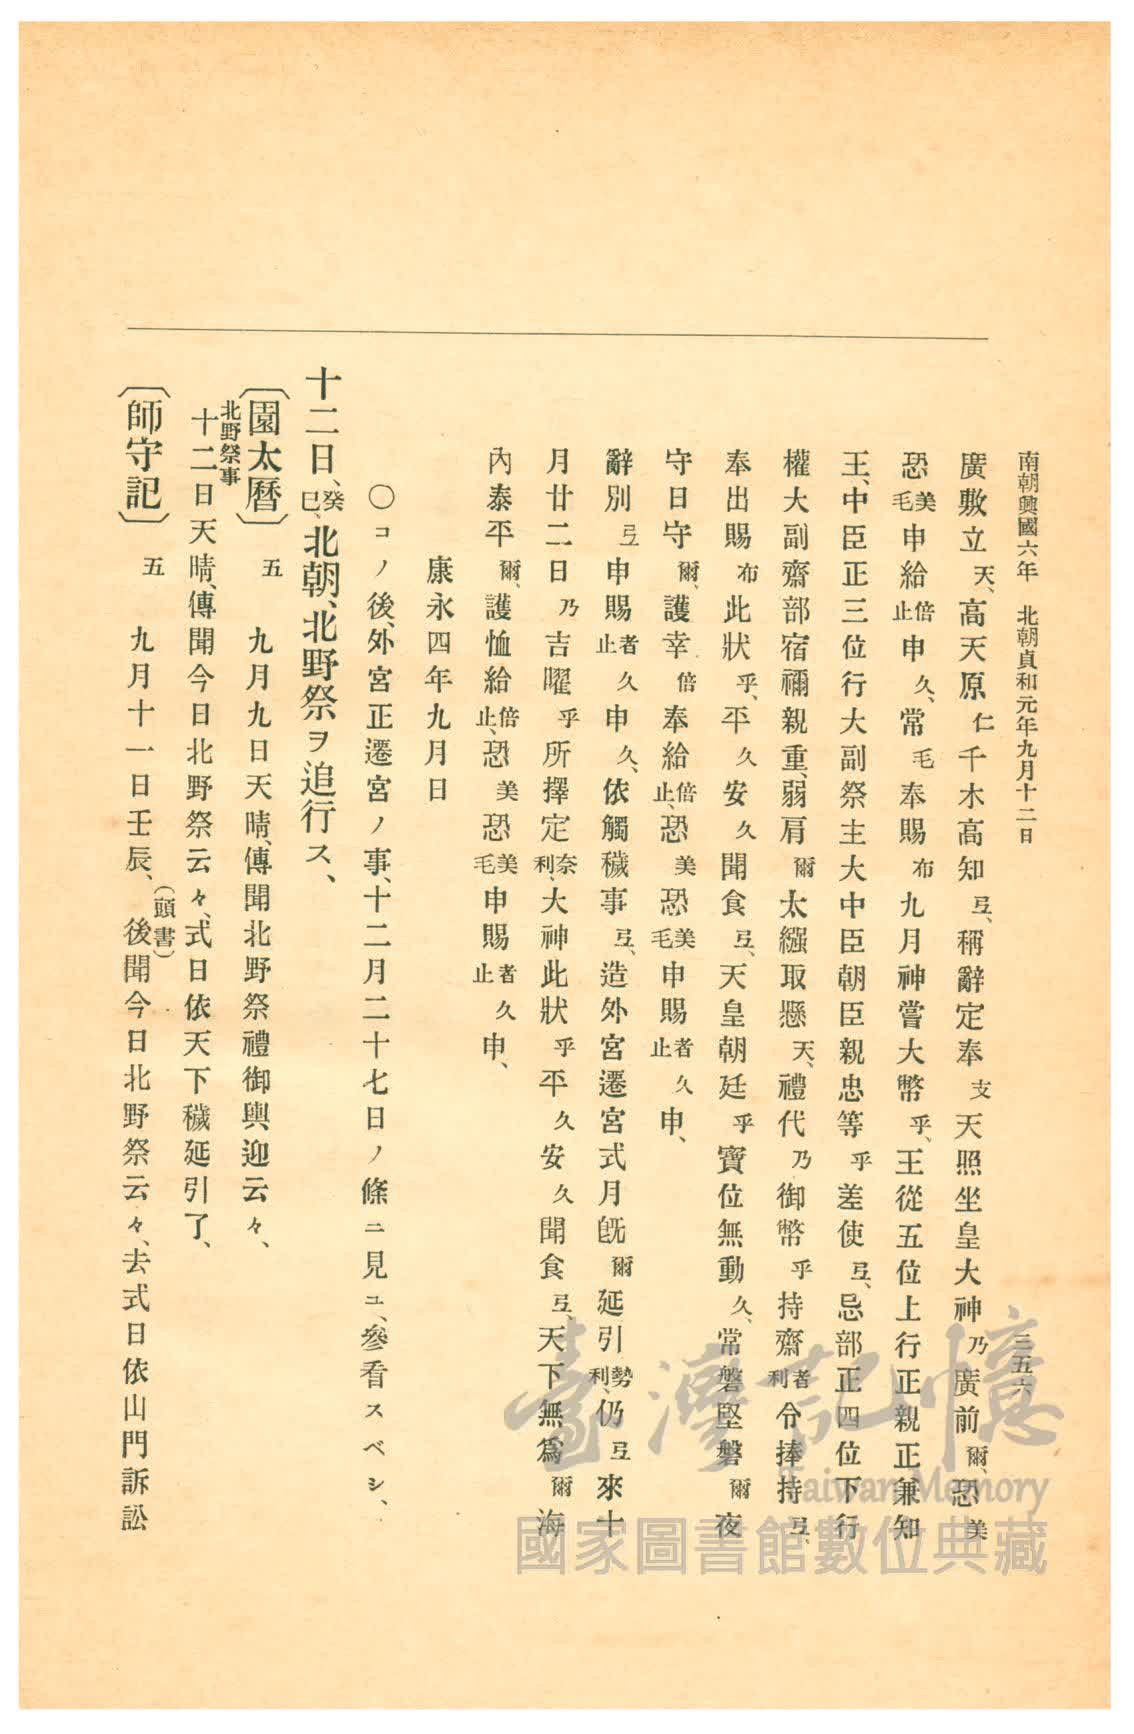 南朝興國六年　北朝貞和元年九月十二日
三五六
廣敷立天、高天原仁千木高知弖、稱辭定奉支天照坐皇大神乃廣前爾、恐美
恐美毛申給倍止申久、常毛奉賜布九月神嘗大幣乎、王從五位上行正親正兼知
王、中臣正三位行大副祭主大中臣朝臣親忠等乎差使弖、忌部正四位下行
權大副齋部宿禰親重、弱肩爾太繦取懸天、禮代乃御幣乎持齋者利令捧持弖、
奉出賜布此狀乎、平久安久聞食弖、天皇朝廷乎寶位無動久、常磐堅磐爾夜
守日守爾、護幸倍奉給倍止、恐美恐美毛申賜者止久申、
辭別弖申賜者止久申久、依觸穢事弖、造外宮遷宮式月旣爾延引勢利、仍弖來十
月廿二日乃吉曜乎所擇定奈利、大神此狀乎平久安久聞食弖、天下無爲爾海
內泰平爾、護恤給倍止、恐美恐美毛申賜者止久申、
康永四年九月日
〇コノ後、外宮正遷宮ノ事、十二月二十七日ノ條ニ見ユ、參看スベシ、
十二日、癸巳、北朝、北野祭ヲ追行ス、
〔園太曆〕　五　九月九日天晴、傳聞北野祭禮御輿迎云々、
北野祭事
十二日天晴、傳聞今日北野祭云々、式日依天下穢延引了、
〔師守記〕　五　九月十一日壬辰、（頭書）後聞今日北野祭云々、去式日依山門訴訟
臺灣記憶
Taiwan Memory
國家圖書館數位典藏